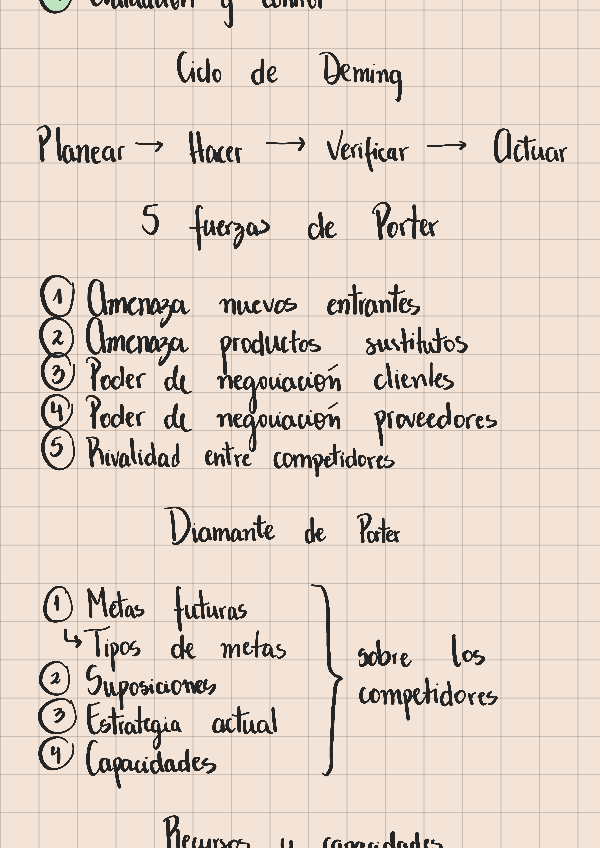 Evaluación y control
Ciclo de Deming
Planear → Hacer → Verificar → Actuar
5 fuerzas de Porter
1 Amenaza nuevos entrantes
2 Amenaza productos sustitutos
3 Poder de negociación clientes
4 Poder de negociación proveedores
5 Rivalidad entre competidores
Diamante de Porter
1 Metas futuras
↳ Tipos de metas
2 Suposiciones
3 Estrategia actual
4 Capacidades
sobre los
competidores
Recursos y capacidades